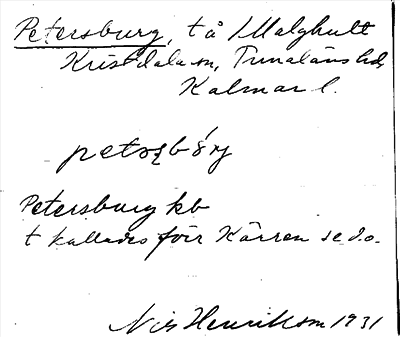 Petersburg, t å Malghult
Kristdala sn, Tunaläns hd,
Kalmar l.
petsbórj
Petersburg kb
t kallades förr Kärren se d.o.
Nils Henriksson 1931